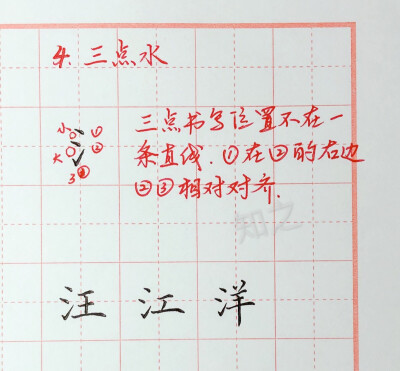 4. 三点水
小 ①
大 ②
3 ③
三点书写位置不在一
条直线. ①在②的右边
②③相对对齐.
知之
汪 江 洋